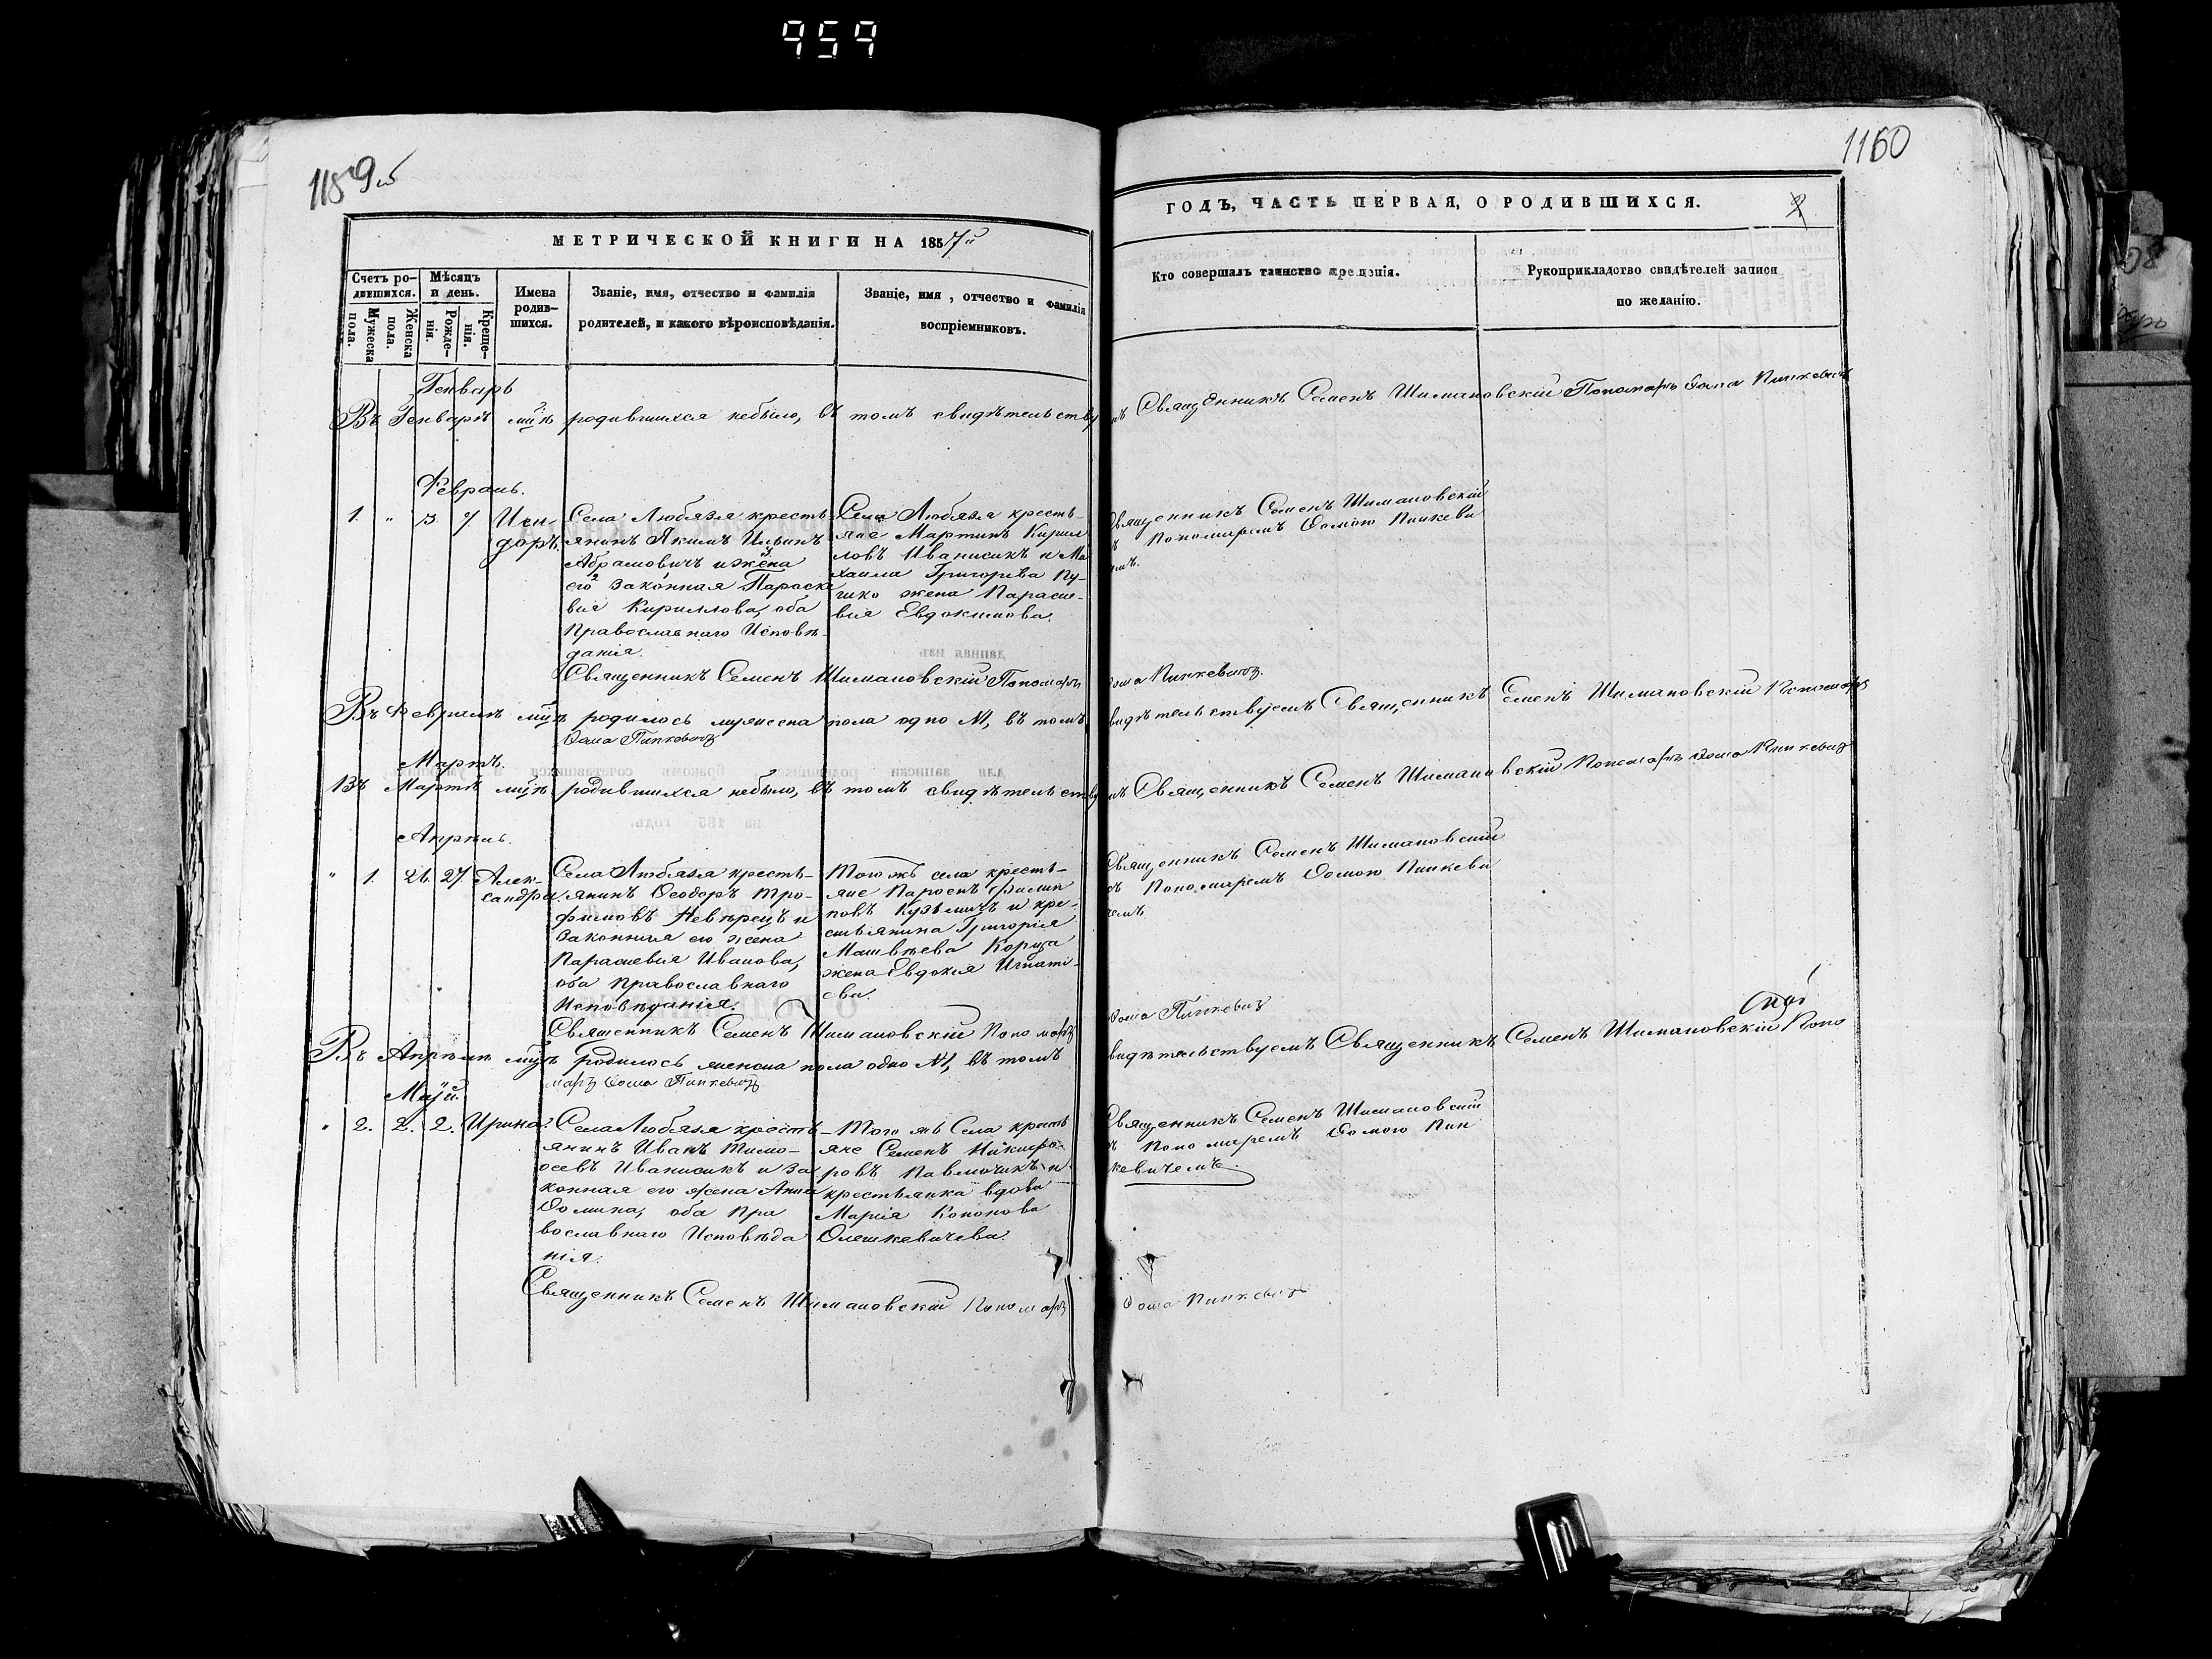 959
1159
1160
МЕТРИЧЕСКОЙ КНИГИ НА 1857й
ГОДЪ, ЧАСТЬ ПЕРВАЯ, О РОДИВШИХСЯ.
2
Счетъ ро-
дившихся.
Мѣсяцъ
и день.
Мужеска
пола.
Женска
пола.
Рожде-
нія.
Креще-
нія.
Имена
родив-
шихся.
Званіе, имя, отчество и фамилія
родителей, и какого вѣроисповѣданія.
Званіе, имя, отчество и фамилія
воспріемниковъ.
Кто совершалъ таинство крещенія.
Рукоприкладство свидѣтелей записи
по желанію.
Генварь
Въ Генварѣ мцѣ родившихся небыло, въ томъ свидѣтельству мъ Священникъ Семенъ Шимановскій Пономарь Ѳома Пинкевичъ
Февраль.
1. " 3. 7. Иси-
доръ.
Села Любязя кресть-
янинъ Якимъ Ильинъ
Абрамовичъ и жена
его законная Параске
вія Кириллова, оба
Православнаго Исповѣ-
данія.
Села Любязя кресть-
яне Мартинъ Кирил
ловъ Иванисикъ и Ми
хаила Григорѣва Пу-
шко жена Параске-
вія Евдокимова.
Священникъ Семенъ Шимановскій
ъ Пономаремъ Ѳомою Пинкеви
чемъ.
Священникъ Семенъ Шимановскій Пономарь Ѳома Пинкевичъ
Въ Февралѣ мцѣ родилось мужеска пола одно №1, въ томъ свидѣтельствуемъ Священникъ Семенъ Шимановскій Пономарь
Ѳома Пинкевичъ
Мартъ.
Въ Мартѣ мцѣ родившихся небыло, въ томъ свидѣтельству мъ Священникъ Семенъ Шимановскій Пономарь Ѳома Пинкевичъ
Апрѣль.
" 1. 26. 27 Алек-
сандра.
Села Любязя кресть-
янинъ Ѳеодоръ Тро-
фимовъ Невѣрецъ и
законная его жена
Параскевія Иванова,
оба Православнаго
Исповѣданія.
Тогожъ села кресть-
яне Парѳенъ Филип
повъ Кузьмичъ и кре-
стьянина Григорія
Матвѣева Корца
жена Евдокія Игнаті-
ева.
Священникъ Семенъ Шимановскій
ъ Пономаремъ Ѳомою Пинкеви
чемъ.
Священникъ Семенъ Шимановскій Пономарь Ѳома Пинкевичъ
Въ Апрѣлѣ мцѣ родилось женска пола одно №1, въ томъ свидѣтельствуемъ Священникъ Семенъ Шимановскій Поно
марь Ѳома Пинкевичъ
Май.
" 2. 2. 2. Ирина.
Села Любязя кресть
янинъ Иванъ Тимо-
ѳеевъ Иванисикъ и за
конная его жена Анна
Ѳомина, оба Пра
вославнаго Исповѣда
нія.
Того жъ Села кресть
яне Семенъ Никифо-
ровъ Павлючикъ и
крестьянка вдова
Марія Кононова
Олешкевичева.
Священникъ Семенъ Шимановскій
ъ Пономаремъ Ѳомою Пин
кевичемъ.
Священникъ Семенъ Шимановскій Пономарь Ѳома Пинкевичъ